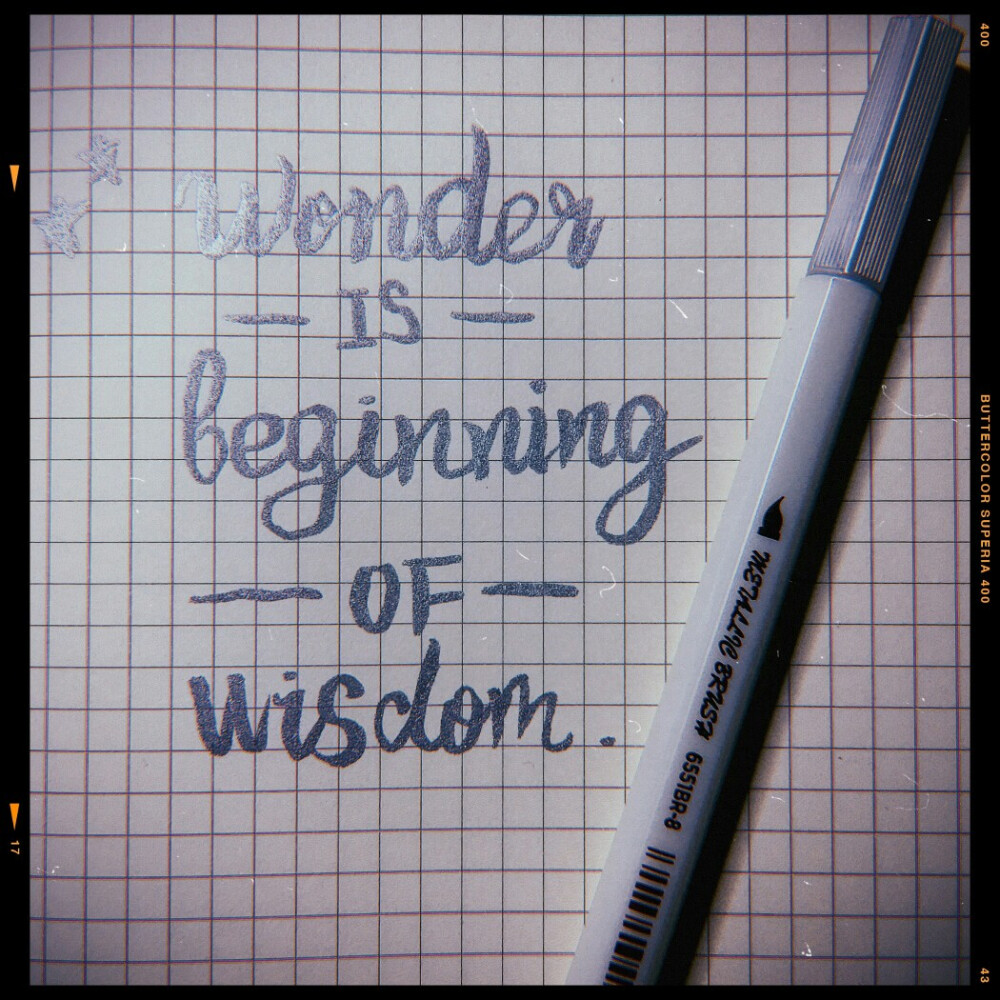 Wonder
— IS —
beginning
— OF —
wisdom.
METALLIC BRUSH 6551BR-8
400
BUTTERCOLOR SUPERIA 400
43
17